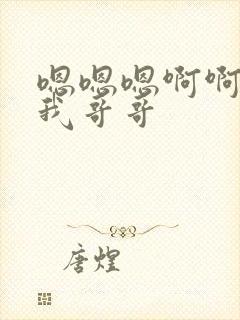 嗯嗯嗯啊啊
我哥哥
唐煌